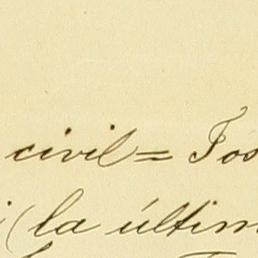 civil = Jos
(la últim